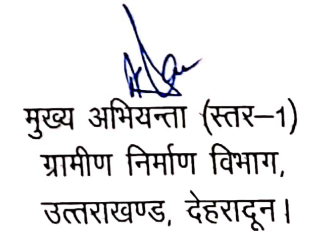 मुख्य अभियन्ता (स्तर–1)
ग्रामीण निर्माण विभाग,
उत्तराखण्ड, देहरादून।